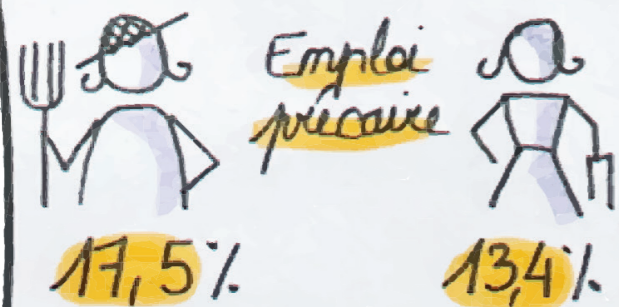 Emploi
précaire
17,5% 13,4%